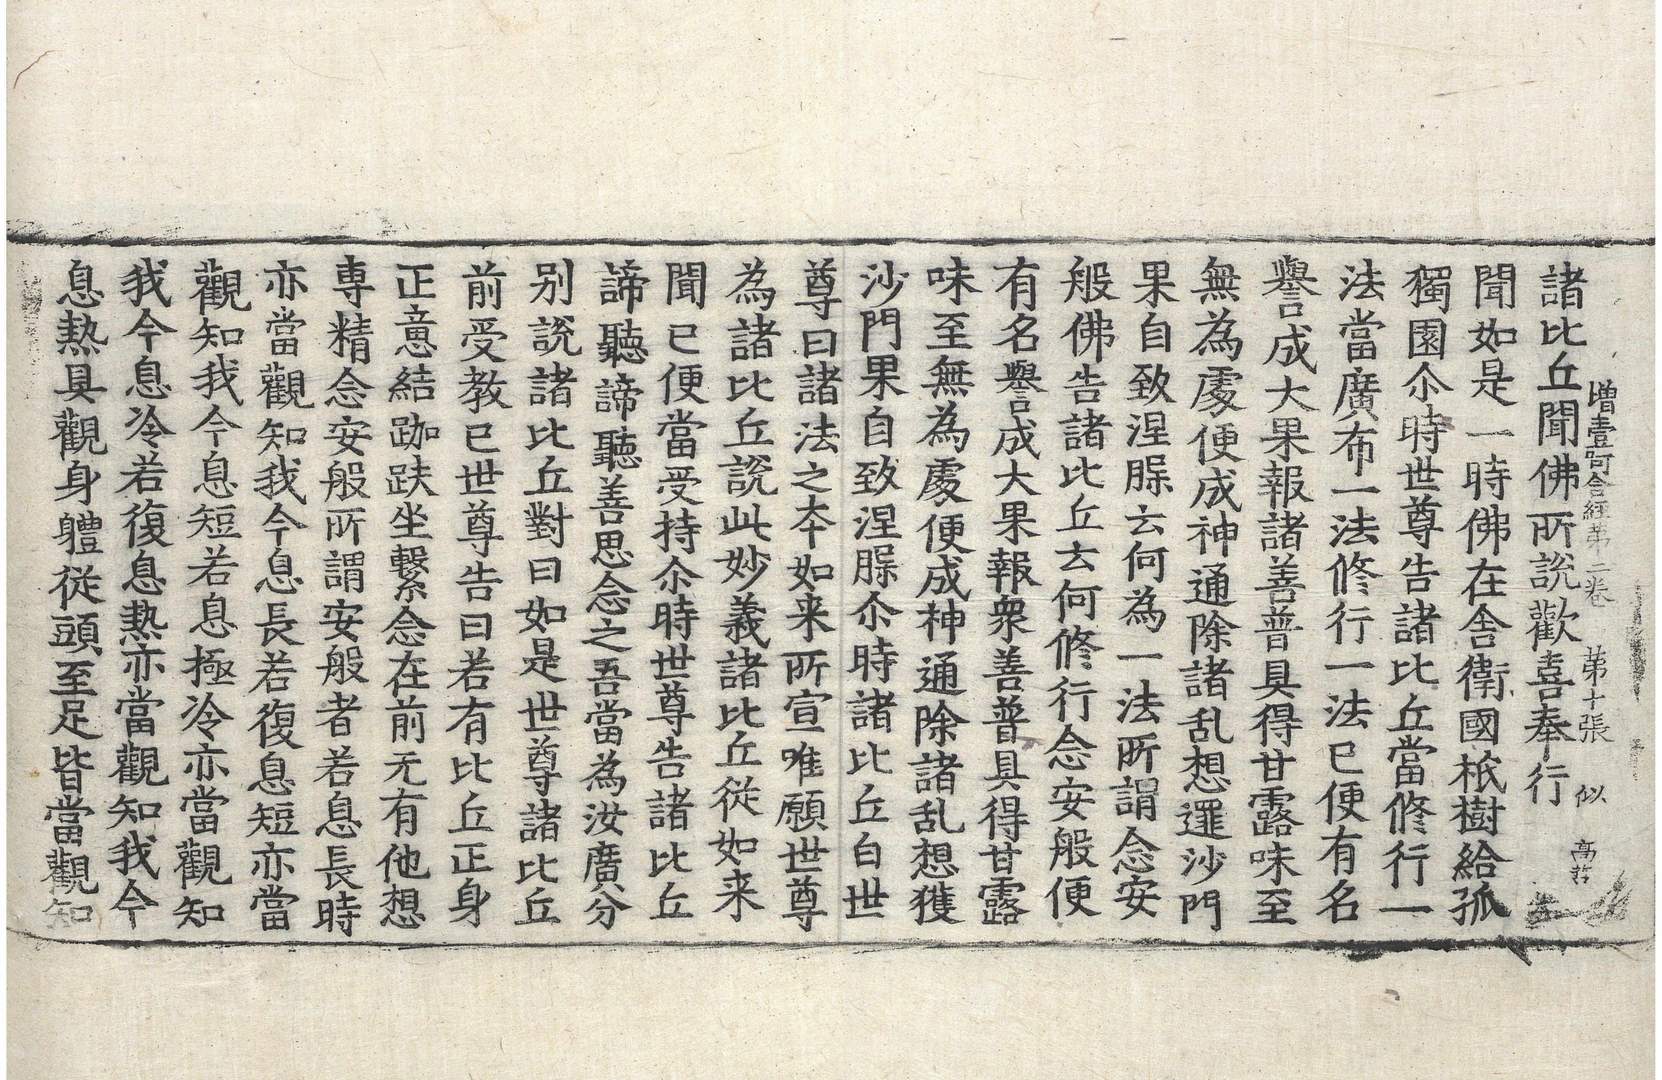 增壹阿含經第二卷 第十張 似 高喆
諸比丘聞佛所說歡喜奉行
聞如是一時佛在舍衛國祇樹給孤
獨園尒時世尊告諸比丘當修行一
法當廣布一法修行一法已便有名
譽成大果報諸善普具得甘露味至
無為處便成神通除諸乱想逮沙門
果自致涅槃云何為一法所謂念安
般佛告諸比丘云何修行念安般便
有名譽成大果報衆善普具得甘露
味至無為處便成神通除諸乱想獲
沙門果自致涅槃尒時諸比丘白世
尊曰諸法之本如来所宣唯願世尊
為諸比丘說此妙義諸比丘從如来
聞已便當受持尒時世尊告諸比丘
諦聽諦聽善思念之吾當為汝廣分
别說諸比丘對曰如是世尊諸比丘
前受教已世尊告曰若有比丘正身
正意結跏趺坐繫念在前无有他想
専精念安般所謂安般者若息長時
亦當觀知我今息長若復息短亦當
觀知我今息短若息極冷亦當觀知
我今息冷若復息熱亦當觀知我今
息熱具觀身體從頭至足皆當觀知